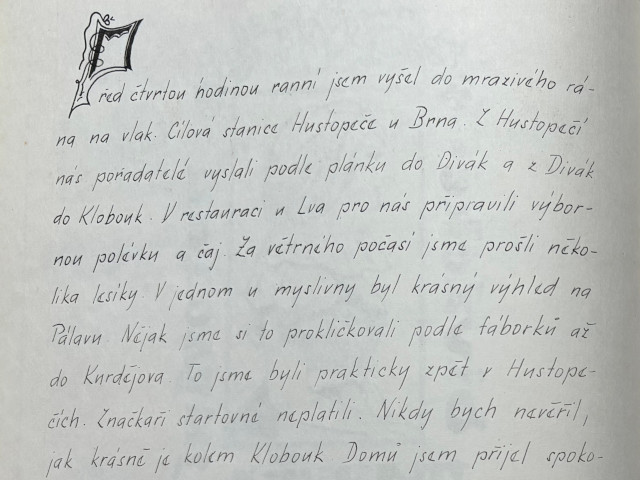 Před čtvrtou hodinou ranní jsem vyšel do mrazivého rá-
na na vlak. Cílová stanice Hustopeče u Brna. Z Hustopečí
nás pořadatelé vyslali podle plánku do Divák a z Divák
do Klobouk. V restauraci u Lva pro nás připravili výbor-
nou polévku a čaj. Za větrného počasí jsme prošli něko-
lika lesíky. V jednom u myslivny byl krásný výhled na
Pálavu. Nějak jsme si to prokličkovali podle fáborků až
do Kurdějova. To jsme byli prakticky zpět v Hustope-
čích. Značkaři startovné neplatili. Nikdy bych nevěřil,
jak krásně je kolem Klobouk. Domů jsem přijel spoko-